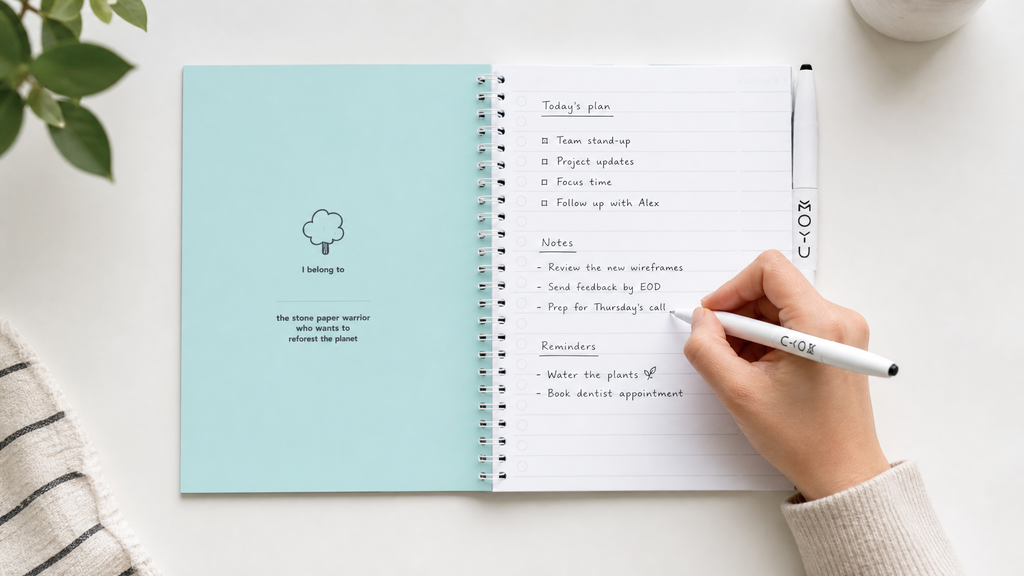 I belong to
the stone paper warrior
who wants to
reforest the planet
Today's plan
Team stand-up
Project updates
Focus time
Follow up with Alex
Notes
- Review the new wireframes
- Send feedback by EOD
- Prep for Thursday's call
Reminders
- Water the plants
- Book dentist appointment
MOYU